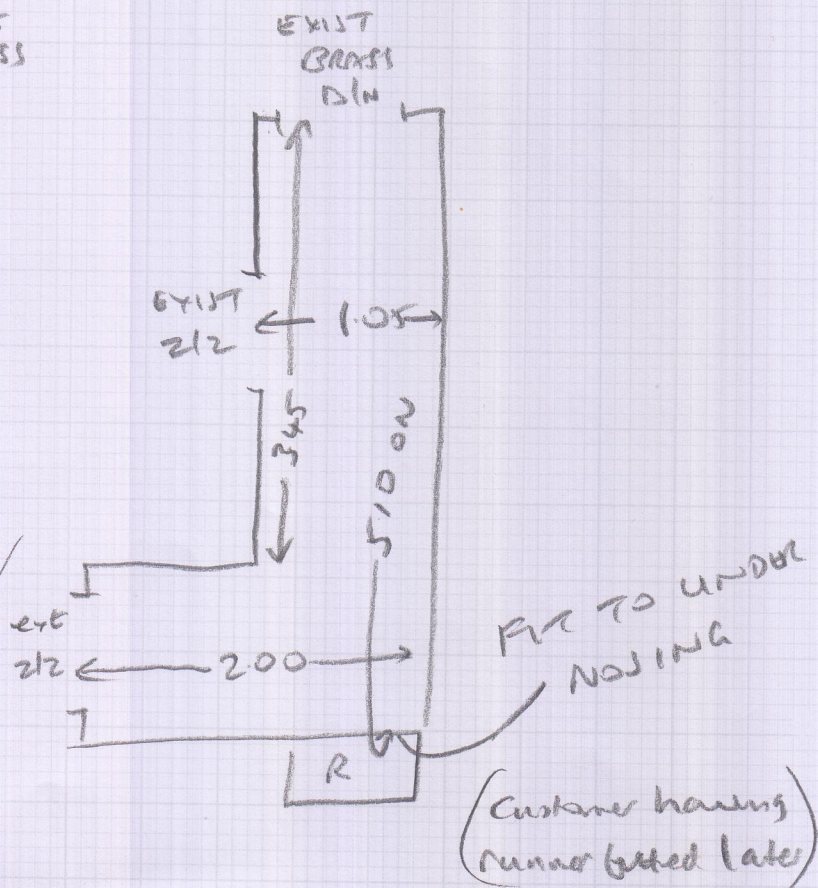 SS
EXIST
BRASS
D/N
EXIST
z/z
1.05
345
510 ON
ext
z/z
2.00
FIT TO UNDER
NOSING
R
(Customer having
runner fitted later)